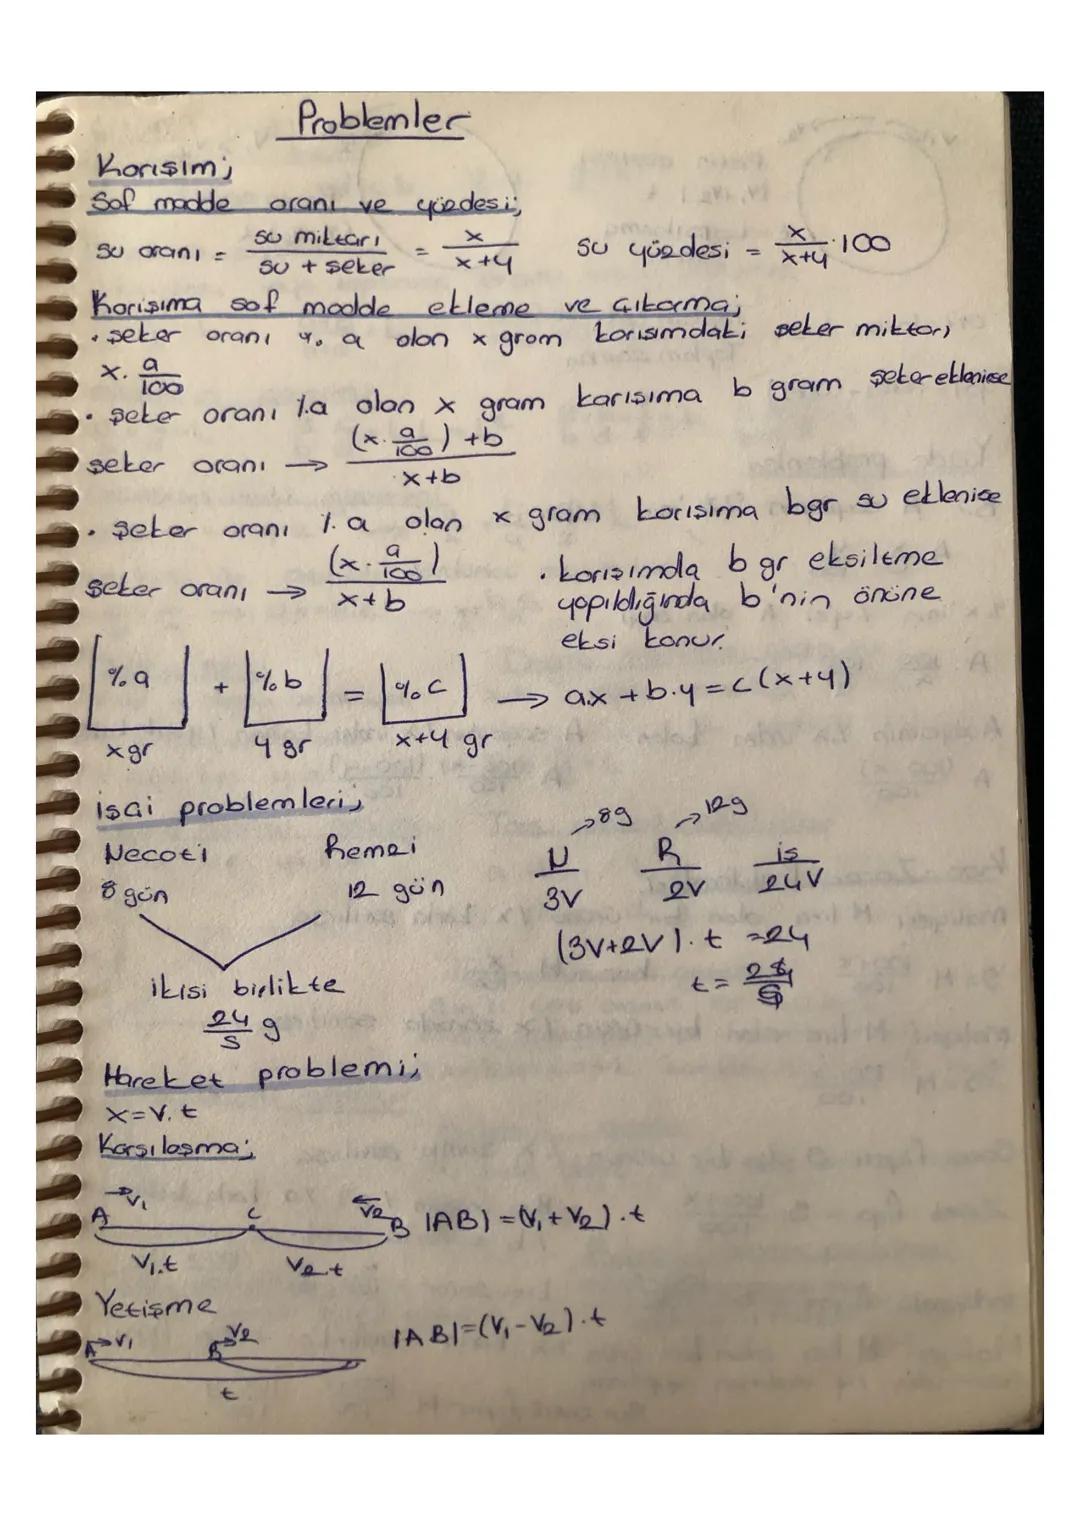 Problemler
Karışım;
Saf madde oranı ve yüzdesi;
su oranı = su miktarı / su + şeker = x / x+y    su yüzdesi = x / x+y . 100
Karışıma saf madde ekleme ve çıkarma;
• şeker oranı % a olan x gram karışımdaki şeker miktarı
x. a/100
• şeker oranı %a olan x gram karışıma b gram şeker eklenirse
şeker oranı → (x. a/100) + b / x+b
• şeker oranı % a olan x gram karışıma b gr su eklenirse
şeker oranı → (x. a/100) / x+b
• karışımda b gr eksiltme
yapıldığında b'nin önüne
eksi konur.
%a + %b = %c → a.x + b.y = c(x+y)
x gr    y gr    x+y gr
işçi problemleri;
Necati    Remzi
8 gün    12 gün
ikisi birlikte
24/5 g
→8g    →12g
N    R    iş
3V    2V    24V
(3V+2V).t = 24
t = 24/5
Hareket problemi;
x=V.t
Karşılaşma;
A V1 C V2 B |AB| = (V1 + V2).t
V1.t    V2.t
Yetişme
A V1 B V2 |AB|=(V1-V2).t
t